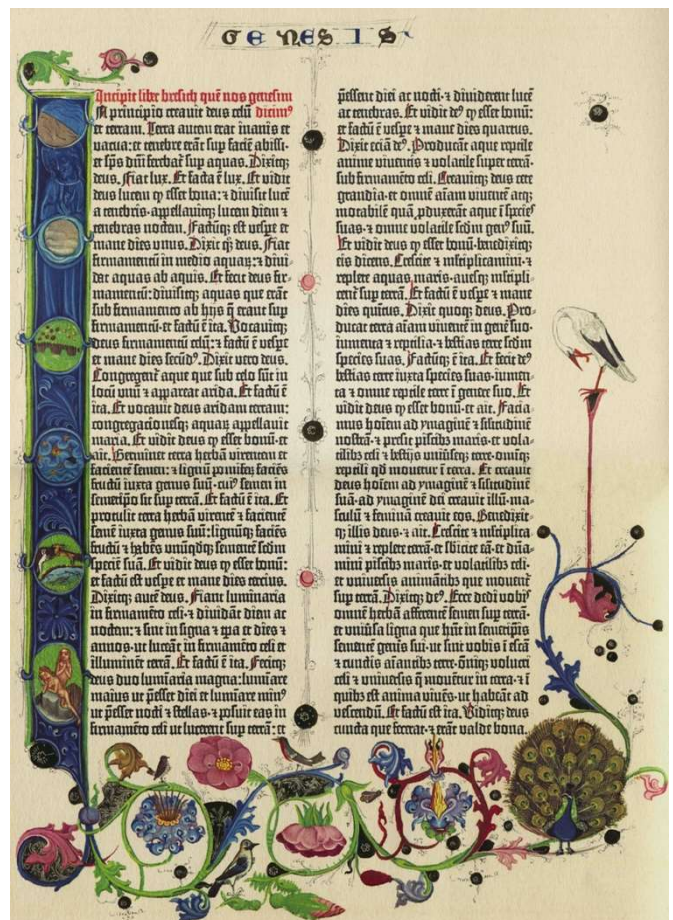 GENESIS
Incipit liber bresich quē nos genesim
dicim⁹
IN principio creavit deus celū
et terram. Terra autem erat inanis et
vacua: et tenebre erāt sup faciē abissi·
et sp̄s dn̄i ferebat͛ sup aquas. Dixitq̧
deus. Fiat lux. Et facta ē lux. Et vidit
deus lucem ꝙ esset bona: ⁊ divisit lucē
a tenebris·appellavitq̧ lucem diem ⁊
tenebras noctem. Factūq̧ est vespe et
mane dies unus. Dixit qq̧ deus. Fiat
firmamentū in medio aquaꝝ: ⁊ divi-
dat aquas ab aquis. Et fecit deus fir-
mamentū: divisitq̧ aquas que erāt
sub firmamento ab hijs q̄ erant sup
firmamentū: et factū ē ita. Vocavitq̧
deus firmamentū celū: ⁊ factū ē vespe
et mane dies secūd⁹. Dixit vero deus.
Congregent͛ aque que sub celo sūt in
locū unū ⁊ appareat arida. Et factū ē
ita. Et vocavit deus aridam terram:
congregacionesq̧ aquaꝝ appellavit
maria. Et vidit deus ꝙ esset bonū·et
ait. Germinet terra herbā virentem et
facientē semen: ⁊ lignū pomifeꝝ faciēs
fructū iuxta genus suū·cui⁹ semen in
semetipso sit sup terrā. Et factū ē ita. Et
protulit terra herbā virentē ⁊ facientē
semē iuxta genus suū: lignūq̧ faciēs
fructū ⁊ habēs unūqdq̧ sementē scdm
speciē suā. Et vidit deus ꝙ esset bonū:
et factū est vespe et mane dies tercius.
Dixitq̧ autē deus. Fiant luminaria
in firmamēto celi·⁊ dividāt diem ac
noctem: ⁊ sint in signa ⁊ tp̄a et dies ⁊
annos·ut luceāt in firmamēto celi et
illuminēt terrā. Et factū ē ita. Fecitq̧
deus duo luminaria magna: luminare
maius ut p̄esset diei et luminare min⁹
ut p̄esset nocti ⁊ stellas·⁊ posuit eas in
firmamēto celi ut lucerent sup terrā: et
p̄essent diei ac nocti·⁊ dividerent lucē
ac tenebras. Et vidit de⁹ ꝙ esset bonū:
et factū ē vespe ⁊ mane dies quartus.
Dixit eciā de⁹. Producāt aque reptile
anime viventis ⁊ volatile super terrā·
sub firmamento celi. Creavitq̧ deus cete
grandia·et omnē aīam viventē atq̧
motabilē quā pduxerāt aque ī species
suas·⁊ omne volatile scdm gen⁹ suū.
Et vidit deus ꝙ esset bonū·benedixitq̧
eis dicens. Crescite ⁊ multiplicamini·⁊
replete aquas maris·avesq̧ multipli-
cent͛ sup terrā. Et factū ē vespe ⁊ mane
dies quintus. Dixit quoq̧ deus. Pro-
ducat terra aīam viventē in genē suo·
iumenta ⁊ reptilia·⁊ bestias terre scdm
species suas. Factūq̧ ē ita. Et fecit de⁹
bestias terre iuxta species suas·iumen-
ta ⁊ omne reptile terre ī genere suo. Et
vidit deus ꝙ esset bonū·et ait. Facia-
mus hoīem ad ymaginē ⁊ similitudinē
nostrā·⁊ presit piscibꝫ maris·et vola-
tilibꝫ celi ⁊ bestijs universeq̧ terre·omniq̧
reptili qd movet͛ ī terra. Et creavit
deus hoīem ad ymaginē ⁊ similitudinē
suā·ad ymaginē dei creavit illū·ma-
sculū ⁊ feminā creavit eos. Benedixit-
q̧ illis deus·⁊ ait. Crescite ⁊ multiplica-
mini ⁊ replete terrā·et subicite eā·et dn̄a-
mini piscibꝫ maris·et volatilibꝫ celi·
et universis animātibꝫ que movent͛
sup terrā. Dixitq̧ de⁹. Ecce dedi vobis
omnē herbā afferentē semen sup terrā·
et universa ligna que hn̄t in semetipsis
sementē genis sui·ut sint vobis ī escā
⁊ cunctis aīantibꝫ terre·om̄iq̧ volucri
celi ⁊ universis q̄ moventur in terra·⁊ ī
quibꝫ est anima vivēs·ut habeāt ad
vescendū. Et factū est ita. Viditq̧ deus
cuncta que fecerat·⁊ erāt valde bona.